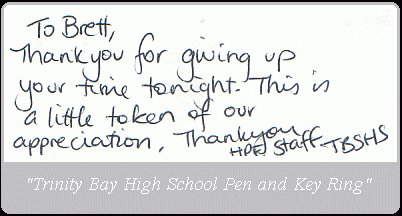 To Brett,
Thankyou for giving up
your time tonight. This is
a little token of our
appreciation, Thankyou
HPE Staff TBSHS
"Trinity Bay High School Pen and Key Ring"